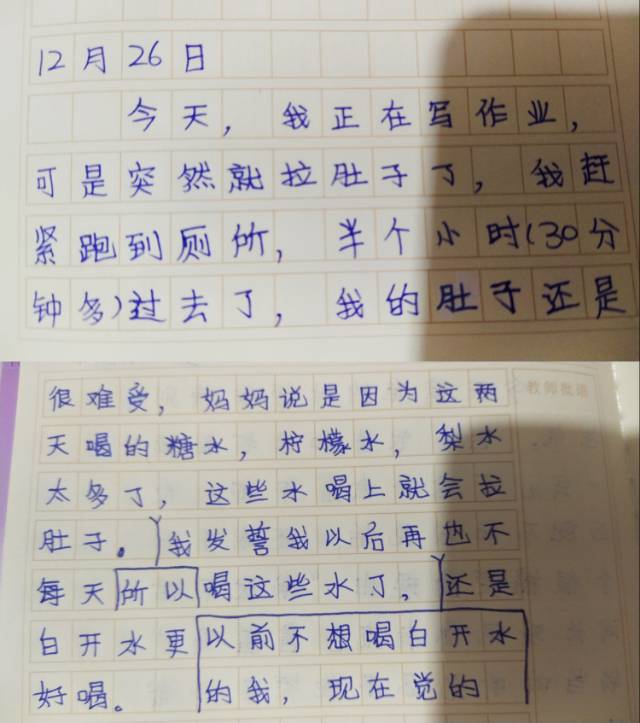 12月26日
今天，我正在写作业，
可是突然就拉肚子了，我赶
紧跑到厕所，半个小时(30分
钟多)过去了，我的肚子还是
很难受，妈妈说是因为这两
天喝的糖水，柠檬水，梨水
太多了，这些水喝上就会拉
肚子。我发誓我以后再也不
每天所以喝这些水了，还是
白开水更以前不想喝白开水
好喝。的我，现在觉的
教师批语